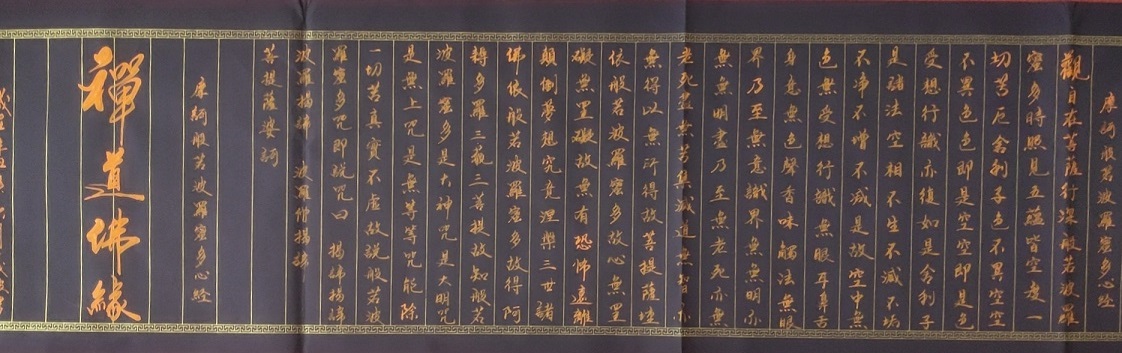 摩訶般若波羅蜜多心經
觀自在菩薩行深般若波羅
蜜多時照見五蘊皆空度一
切苦厄舍利子色不異空空
不異色色即是空空即是色
受想行識亦復如是舍利子
是諸法空相不生不滅不垢
不淨不增不減是故空中無
色無受想行識無眼耳鼻舌
身意無色聲香味觸法無眼
界乃至無意識界無無明亦
無無明盡乃至無老死亦無
老死盡無苦集滅道無智亦
無得以無所得故菩提薩埵
依般若波羅蜜多故心無罣
礙無罣礙故無有恐怖遠離
顛倒夢想究竟涅槃三世諸
佛依般若波羅蜜多故得阿
耨多羅三藐三菩提故知般若
波羅蜜多是大神咒是大明咒
是無上咒是無等等咒能除
一切苦真實不虛故說般若波
羅蜜多咒即說咒曰 揭諦揭諦
波羅揭諦 波羅僧揭諦
菩提薩婆訶
摩訶般若波羅蜜多心經
禪道佛緣